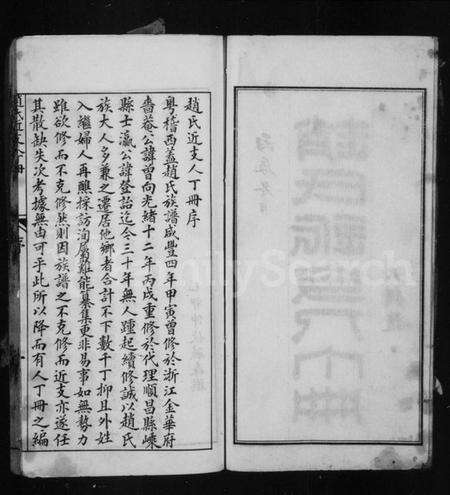 趙氏近支人丁冊序
粵稽西蓋趙氏族譜咸豐四年甲寅曾修於浙江金華府
嗇菴公諱曾向光緒十二年丙戌重修於代理順昌縣嵊
縣士瀛公諱登詒迄今三十年無人踵起續修誠以趙氏
族大人多兼之遷居他鄉者合計不下數千丁抑且外姓
入繼婦人再醮採訪洵屬難能纂集更非易事如無勢力
雖欲修而不克修然則因族譜之不克修而近支亦遂任
其散缺失次考據無由可乎此所以降而有人丁冊之編
趙氏近支人丁冊
序
FamilySearch